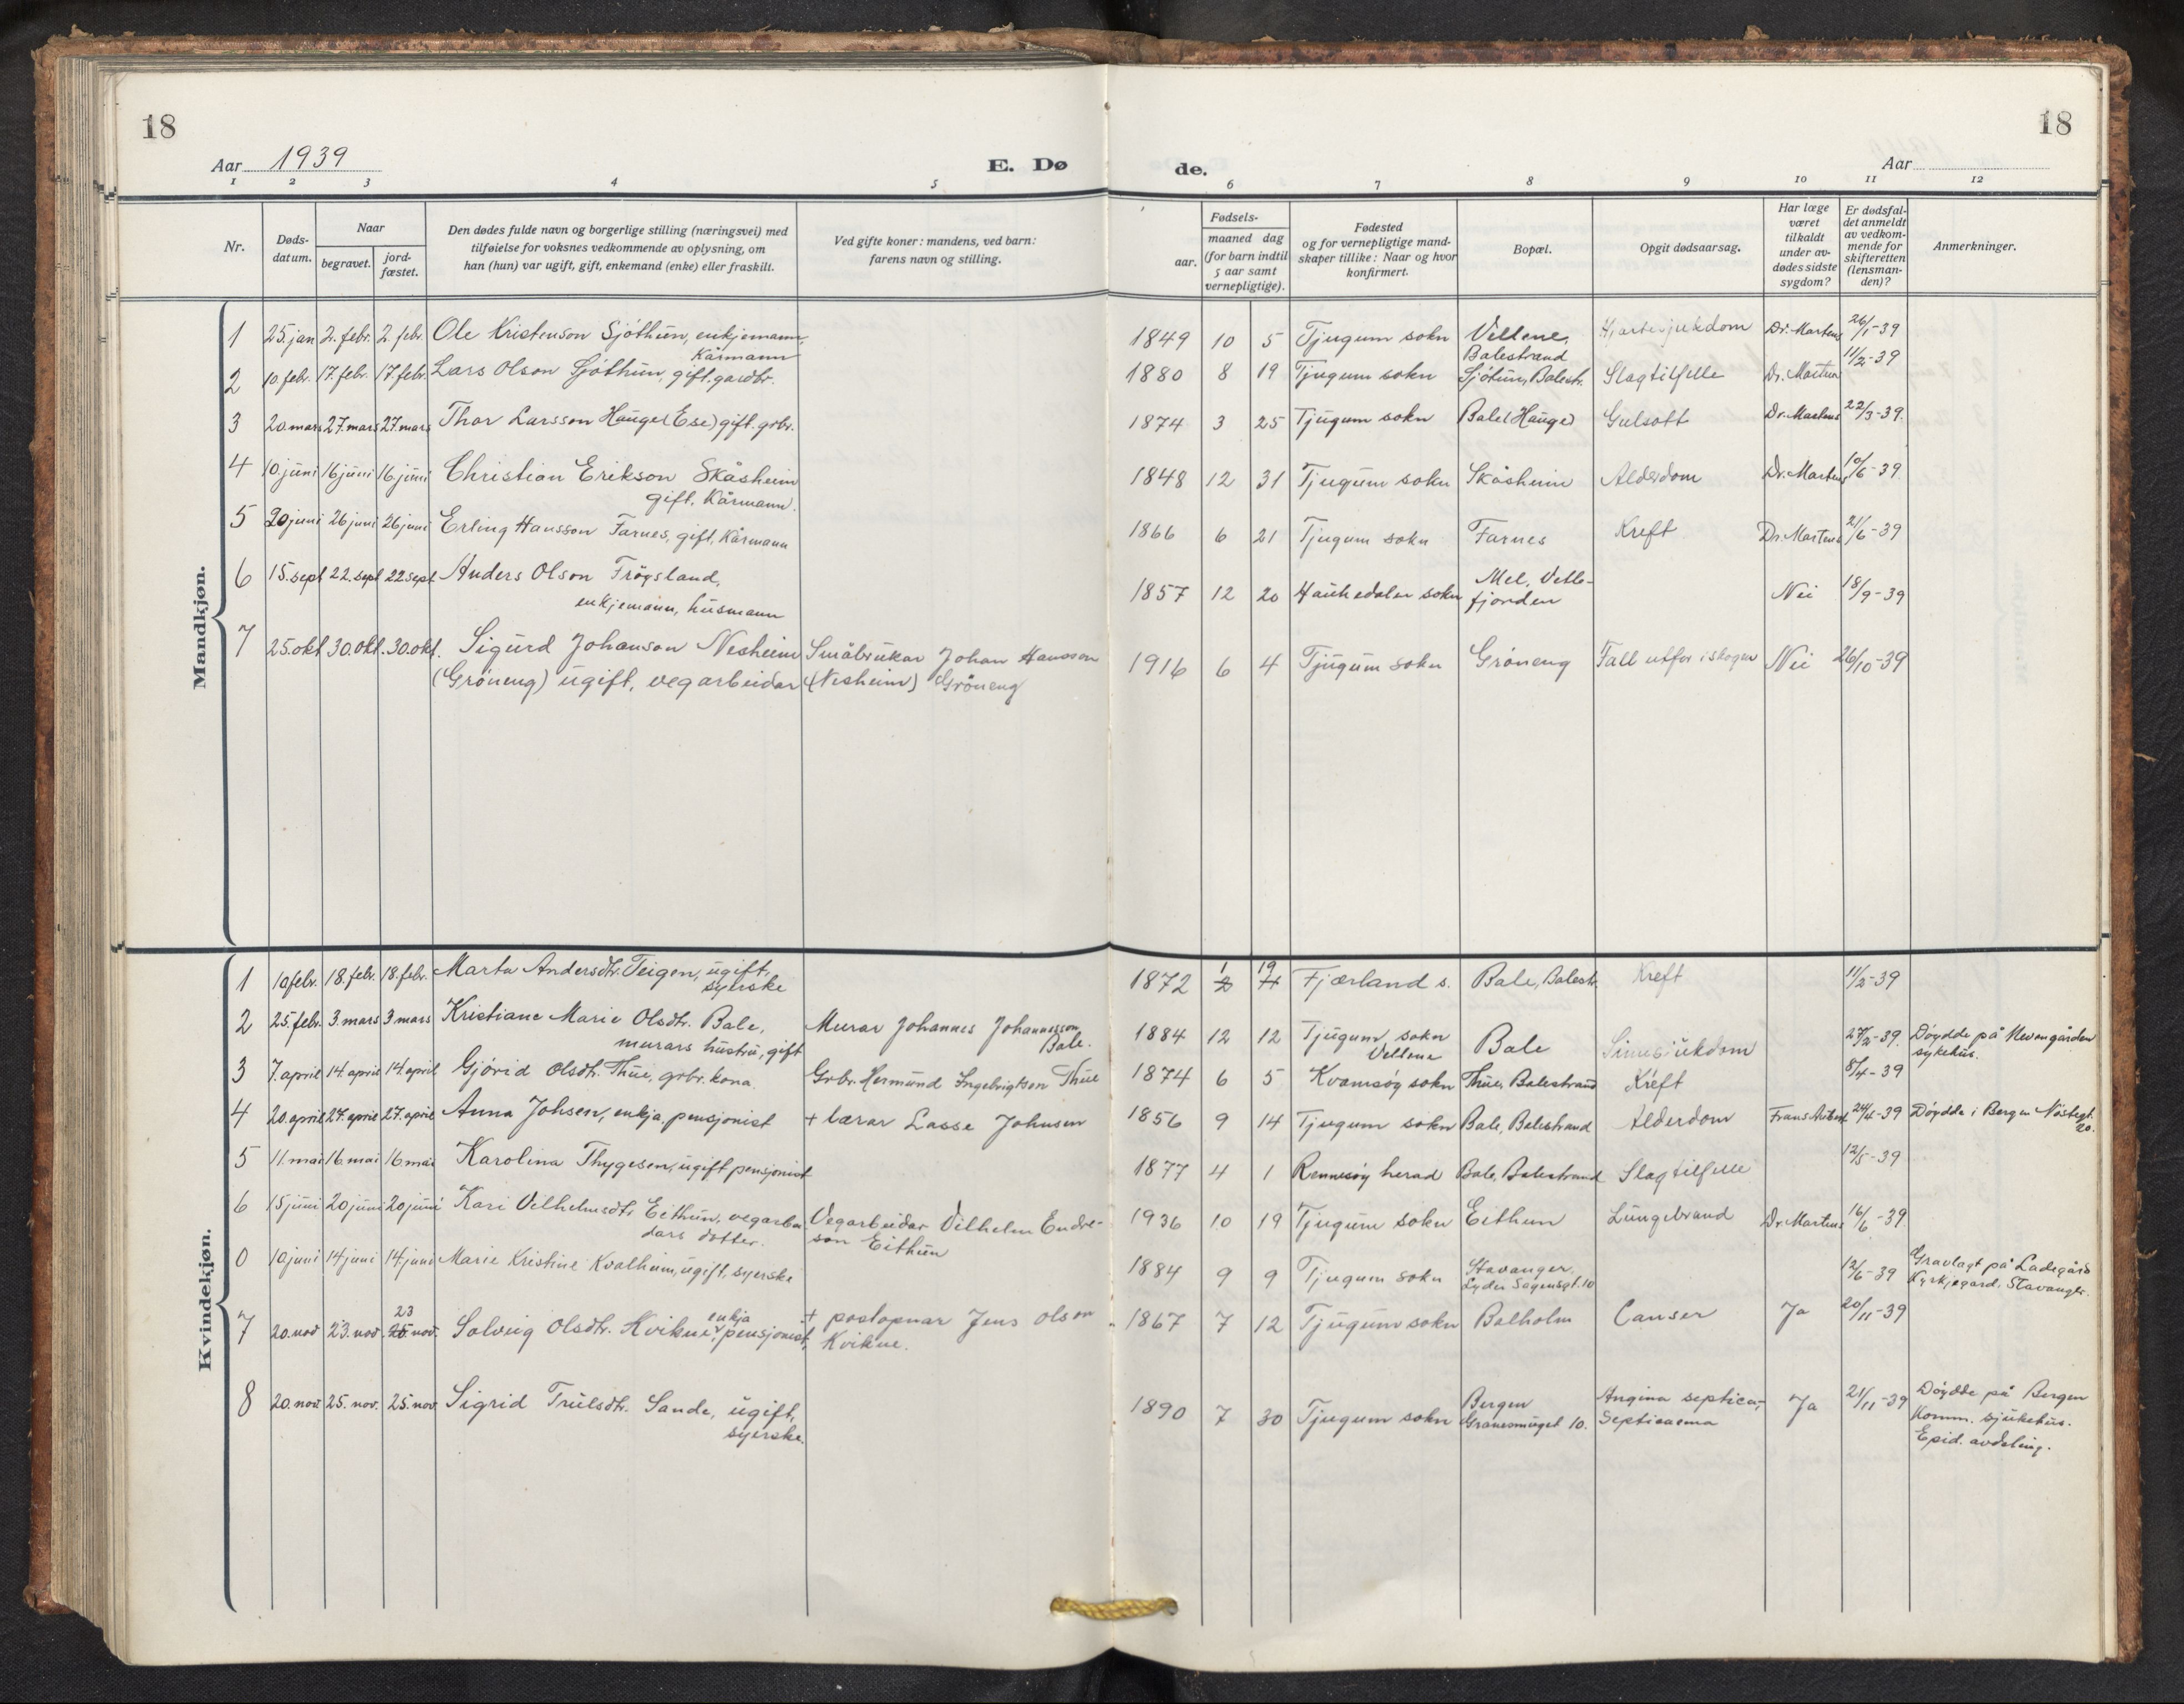 18
18
Aar 1939
E. Dø
de.
Aar
1 2 3 4 5 6 7 8 9 10 11 12
Nr.
Døds-
datum.
Naar
begravet.
jord-
fæstet.
Den dødes fulde navn og borgerlige stilling (næringsvei) med
tilføielse for voksnes vedkommende av oplysning, om
han (hun) var ugift, gift, enkemand (enke) eller fraskilt.
Ved gifte koner: mandens, ved barn:
farens navn og stilling.
Fødsels-
aar.
maaned dag
(for barn indtil
5 aar samt
vernepligtige).
Fødested
og for vernepligtige mand-
skaper tillike: Naar og hvor
konfirmert.
Bopæl.
Opgit dødsaarsag.
Har læge
været
tilkaldt
under av-
dødes sidste
sygdom?
Er dødsfal-
det anmeldt
av vedkom-
mende for
skifteretten
(lensman-
den)?
Anmerkninger.
Mandkjøn.
1 25. jan 2. febr. 2. febr. Ole Kristenson Sjøthun, enkjemann, 1849 10 5 Tjugum sokn Vetlene, Hjartesjukdom Dr. Martens 26/1-39
Kårmann Balestrand
2 10. febr. 17. febr. 17 febr. Lars Olson Sjøthun, gift, gardbr. 1880 8 19 Tjugum sokn Sjøtun, Balestr. Slagtilfelle Dr. Martens 11/2-39
3 20. mars 27. mars 27. mars Thor Larsson Hauge (Ese) gift. grbr. 1874 3 25 Tjugum sokn Bale (Hauge) Gulsott Dr. Martens 22/3-39.
4 10. juni 16 juni 16. juni Christian Erikson Skåsheim 1848 12 31 Tjugum sokn Skåsheim Alderdom Dr. Martens 10/6-39
gift, Kårmann.
5 20 juni 26 juni 26 juni Erling Hansson Farnes, gift, Kårmann 1866 6 21 Tjugum sokn Farnes Kreft Dr. Martens 21/6-39
6 15. sept 22. sept 22 sept Anders Olson Frøysland, 1857 12 20 Haukedalen sokn Mel, Vetle- Nei 18/9-39
enkjemann, husmann fjorden
7 25. okt 30. okt. 30. okt. Sigurd Johanson Nesheim Småbrukar Johan Hansson 1916 6 4 Tjugum sokn Grøneng Fall utfor i skogen Nei 26/10-39
(Grøneng) ugift, vegarbeidar (Nesheim) Grøneng
Kvindekjøn.
1 10 febr. 18. febr. 18. febr. Marta Andersdtr. Teigen, ugift, 1872 1 19 Fjærland s. Bale, Balestr. Kreft 11/2-39
syerske
2 25. febr. 3. mars 3 mars Kristiane Marie Olsdtr. Bale, Murar Johannes Johannesson 1884 12 12 Tjugum sokn Bale 27/2-39. Døydde på Nevengården
murars hustru, gift Bale. Vetlene sykehus.
3 7. april 14. april 14. april Gjørid Olsdtr. Thue, grbr. kona. Grbr. Hermund Ingebrigtson Thue 1874 6 5 Kvamsøy sokn Thue, Balestrand Kreft 8/4-39
4 20. april 27. april 27. april Anna Johsen, enkja, pensjonist + lærar Lasse Johnsen 1856 9 14 Tjugum sokn Bale, Balestrand Alderdom 24/4-39 Døydde i Bergen Nøstegt.
20.
5 11. mai 16. mai 16 mai Karolina Thygesen, ugift pensjonist 1877 4 1 Rennesøy herad Bale, Balestrand Slagtilfelle 12/5-39
6 15 juni 20 juni 20 juni Kari Vilhelmsdtr Eithun, vegarbei- Vegarbeidar Vilhelm Endre- 1936 10 19 Tjugum sokn Eithun Lungebrand Dr. Martens 16/6-39.
dars dotter. son Eithun
0 10 juni 14 juni 14. juni Marie Kristine Kvalheim, ugift, syerske 1884 9 9 Tjugum sokn Stavanger, 12/6-39 Gravlagt på Ladegård
Lyder Sagensgt. 10 Kyrkjegard. Stavanger.
7 20. nov 23. nov. 23 nov. Solveig Olsdtr. Kvikne, enkja pensjonist, + postopnar Jens Olson 1867 7 12 Tjugum sokn Balholm Canser Ja 20/11-39
Kvikne.
8 20. nov 25. nov. 25. nov Sigrid Trulsdtr. Sande, ugift, 1890 7 30 Tjugum sokn Bergen Angina septica, Ja 21/11-39 Døydde på Bergen
syerske. 10. Septicaema Komm. sjukehus.
Epid. avdeling.